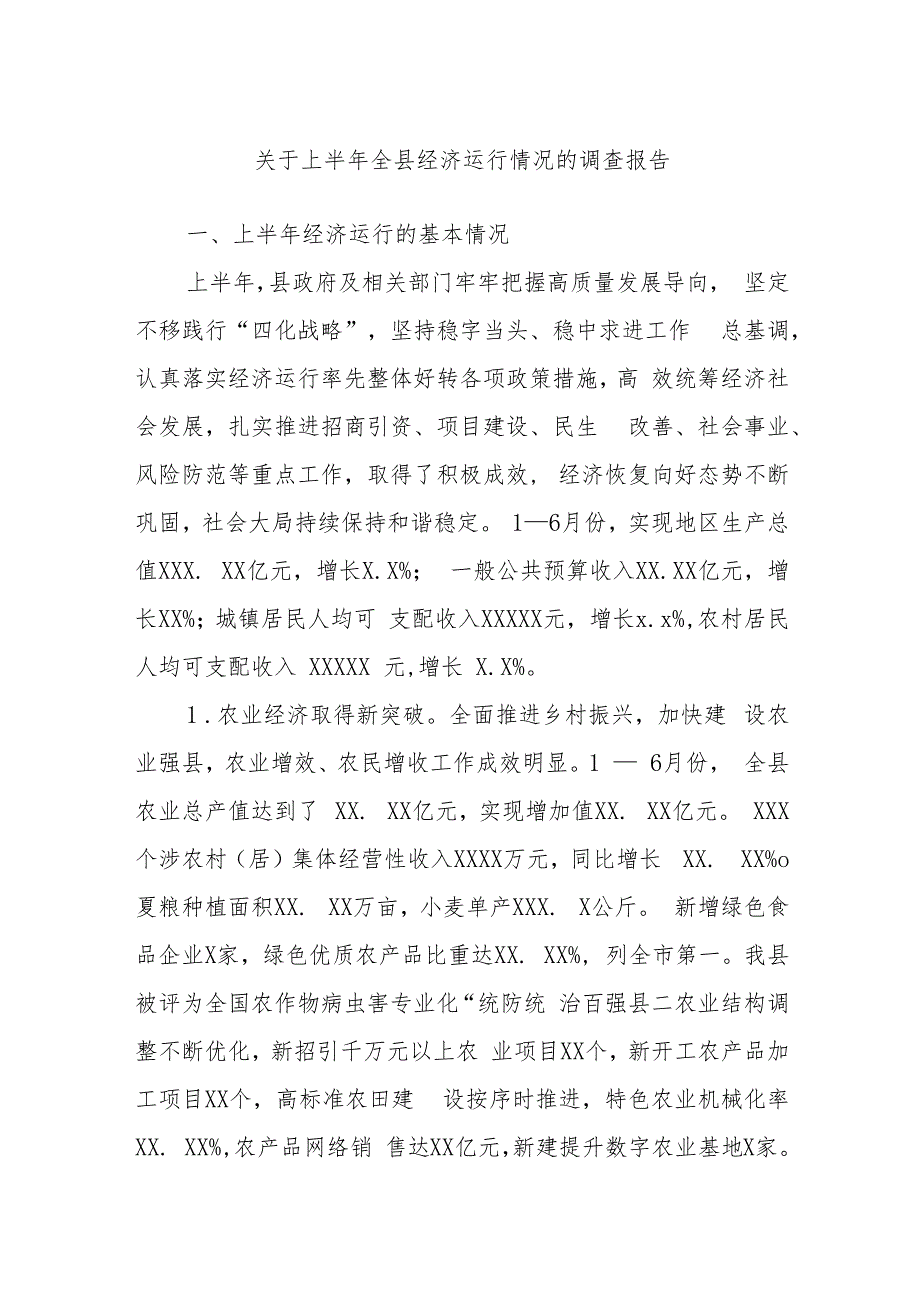 关于上半年全县经济运行情况的调查报告
一、上半年经济运行的基本情况
上半年,县政府及相关部门牢牢把握高质量发展导向， 坚定
不移践行“四化战略”，坚持稳字当头、稳中求进工作 总基调，
认真落实经济运行率先整体好转各项政策措施，高 效统筹经济社
会发展，扎实推进招商引资、项目建设、民生 改善、社会事业、
风险防范等重点工作，取得了积极成效, 经济恢复向好态势不断
巩固，社会大局持续保持和谐稳定。1—6月份，实现地区生产总
值XXX. XX亿元，增长X.X%； 一般公共预算收入XX.XX亿元，增
长XX%；城镇居民人均可 支配收入XXXXX元，增长x.x%,农村居民
人均可支配收入 XXXXX 元,增长 X.X%。
1.农业经济取得新突破。全面推进乡村振兴，加快建 设农
业强县，农业增效、农民增收工作成效明显。1 — 6月份， 全县
农业总产值达到了 XX. XX亿元，实现增加值XX. XX亿元。 XXX
个涉农村（居）集体经营性收入XXXX万元，同比增长 XX. XX%o
夏粮种植面积XX. XX万亩，小麦单产XXX. X公斤。 新增绿色食
品企业X家，绿色优质农产品比重达XX. XX%, 列全市第一。我县
被评为全国农作物病虫害专业化“统防统 治百强县二农业结构调
整不断优化，新招引千万元以上农 业项目XX个，新开工农产品加
工项目XX个，高标准农田建 设按序时推进，特色农业机械化率
XX. XX%,农产品网络销 售达XX亿元,新建提升数字农业基地X家。